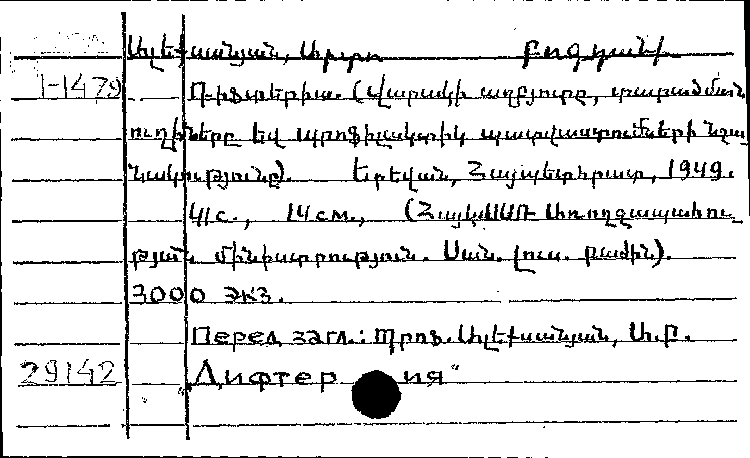 Ալեքսանյան, Արտո Բոգդանի
I-1479 Դիֆտերիա. (Վարակի աղբյուրը, տարածման
ուղիները եվ պրոֆիլակտիկ պատվաստումների նշա
նակությունը). Երեվան, Հայպետհրատ, 1949.
41 с., 14 см., (ՀայկՍՍՌ Առողջապահու
թյան մինիստրություն. Սան. լուս. բաժին).
3000 экз.
Перед загл.: Պրոֆ. Ալեքսանյան, Ա.Բ.
29142 „Дифтерия"